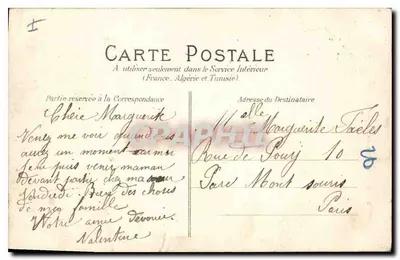 I
CARTE POSTALE
A utiliser seulement dans le Service Intérieur
(France, Algérie et Tunisie)
Partie réservée à la Correspondance
Adresse du Destinataire
Chère Marguerite
Venez me voir quand
aurez un moment
je ne puis venir maman
devant partir chez ma sœur
Vendredi Bien des choses
de ma famille
Votre amie dévouée
Valentine
Melle Marguerite
Rue de 10
Parc Mont souris
Paris